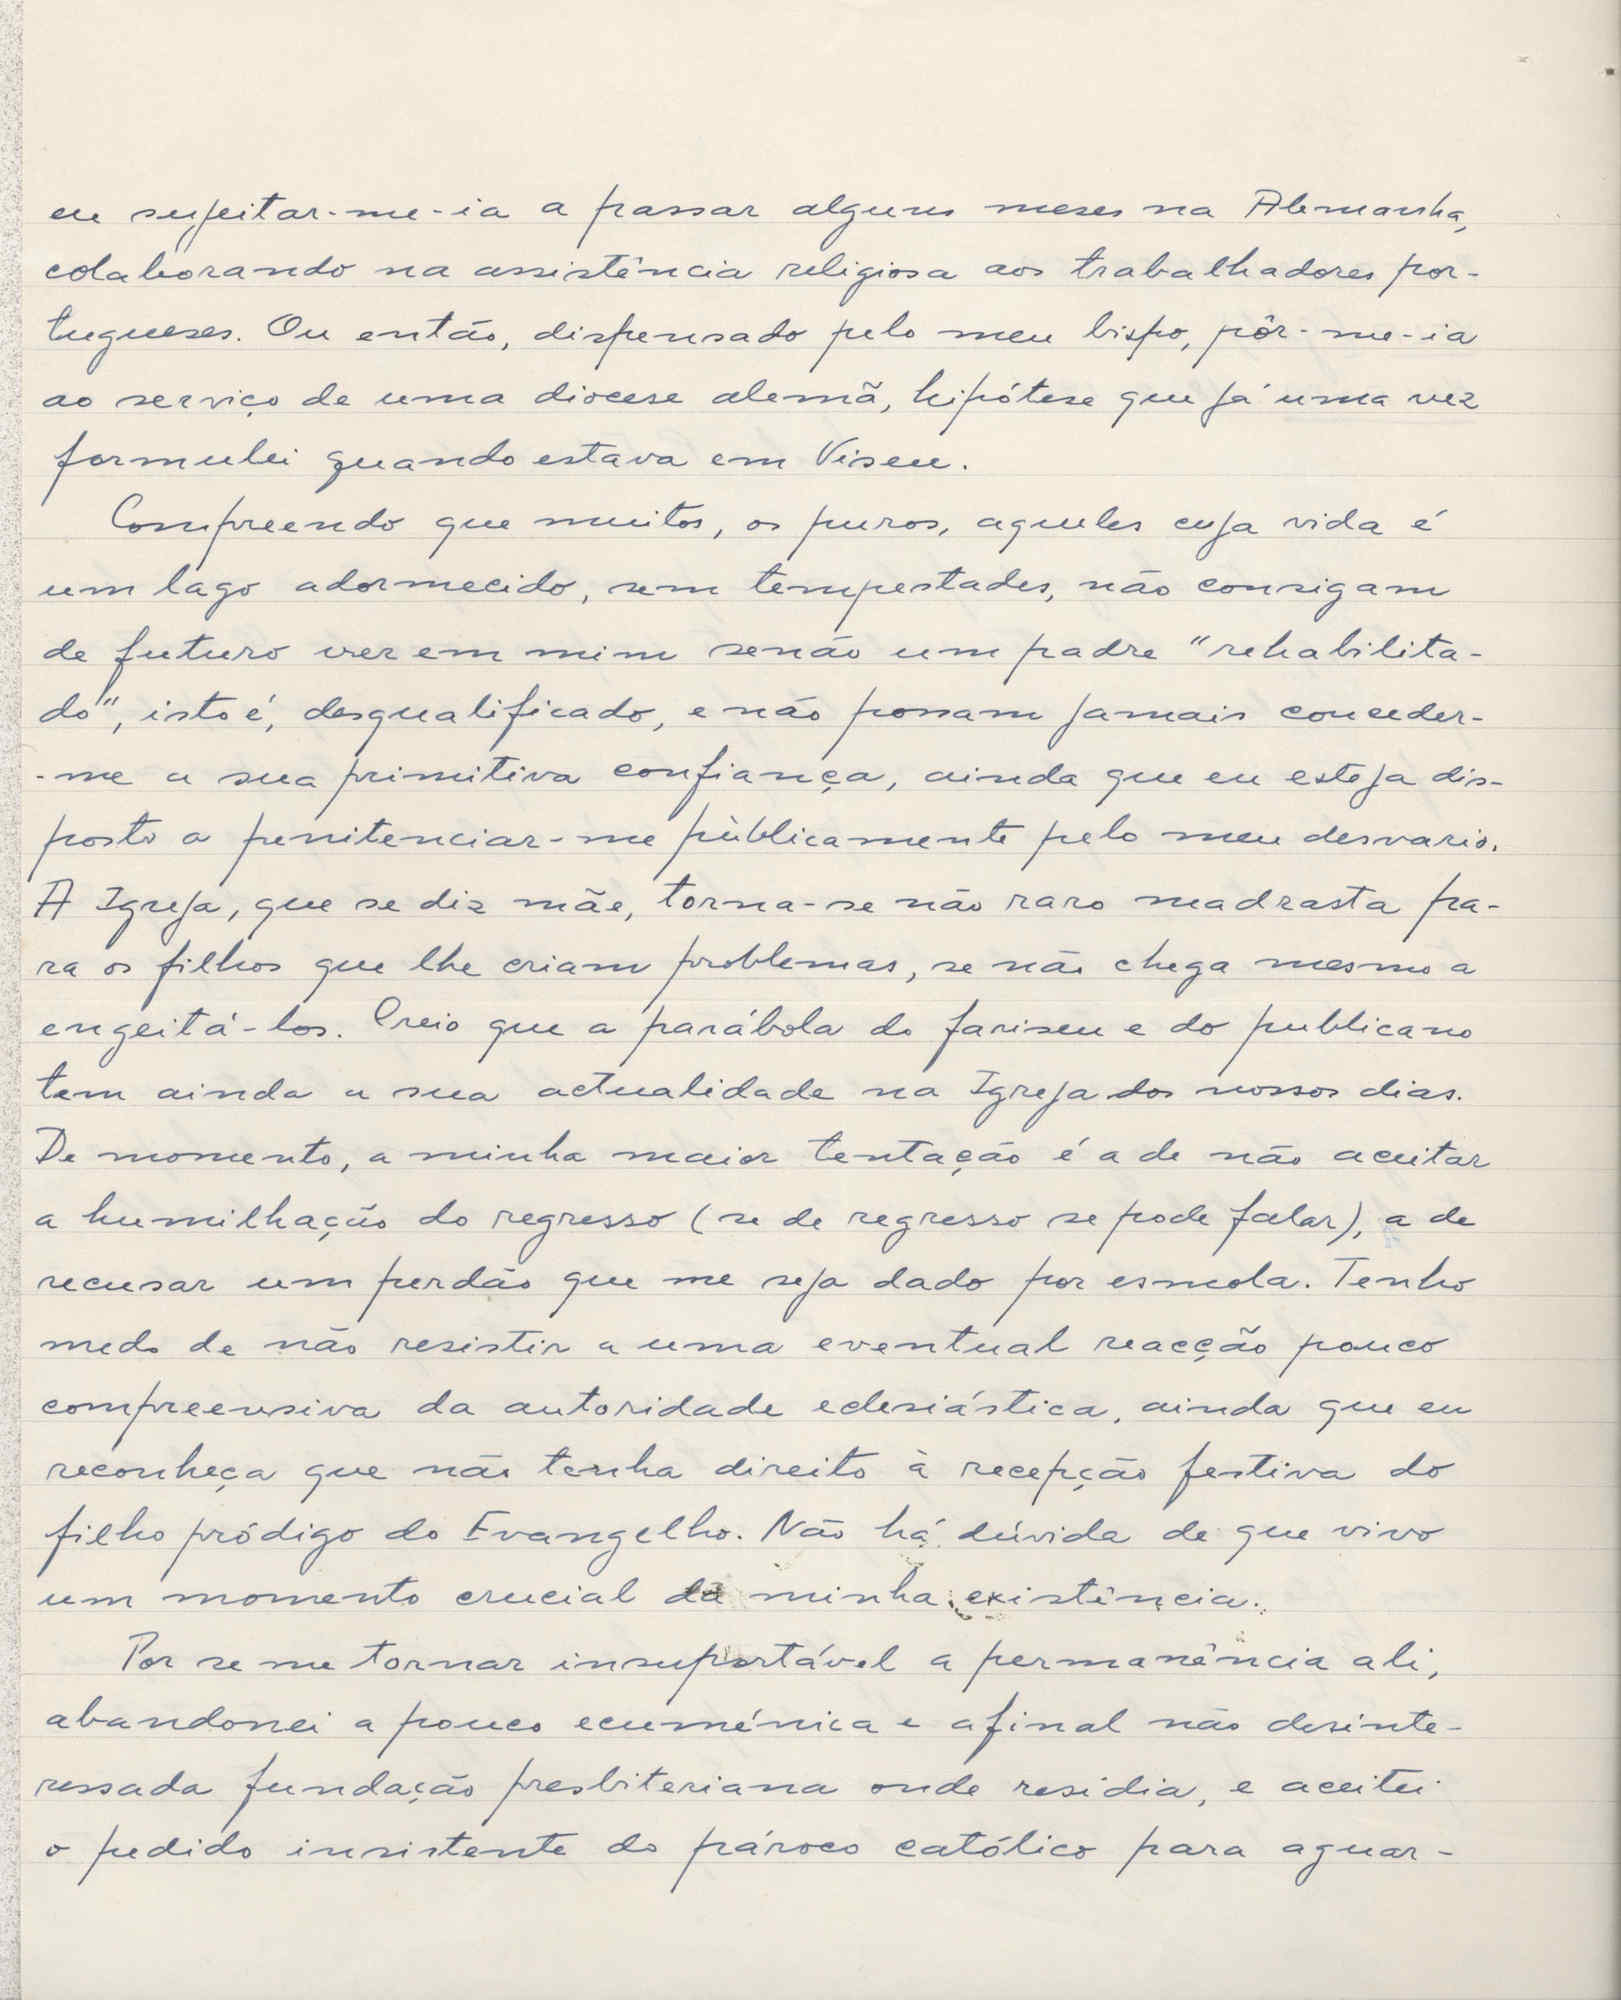 eu sujeitar-me-ia a passar alguns meses na Alemanha,
colaborando na assistência religiosa aos trabalhadores por-
tugueses. Ou então, dispensado pelo meu bispo, pôr-me-ia
ao serviço de uma diocese alemã, hipótese que já uma vez
formulei quando estava em Viseu.
Compreendo que muitos, os puros, aqueles cuja vida é
um lago adormecido, sem tempestades, não consigam
de futuro ver em mim senão um padre "rehabilita-
do", isto é, desqualificado, e não possam jamais conceder-
-me a sua primitiva confiança, ainda que eu esteja dis-
posto a penitenciar-me pùblicamente pelo meu desvario.
A Igreja, que se diz mãe, torna-se não raro madrasta pa-
ra os filhos que lhe criam problemas, se não chega mesmo a
engeitá-los. Creio que a parábola do fariseu e do publicano
tem ainda a sua actualidade na Igreja dos nossos dias.
De momento, a minha maior tentação é a de não aceitar
a humilhação do regresso (se de regresso se pode falar), a de
recusar um perdão que me seja dado por esmola. Tenho
medo de não resistir a uma eventual reacção pouco
compreensiva da autoridade eclesiástica, ainda que eu
reconheça que não tenha direito à recepção festiva do
filho pródigo do Evangelho. Não há dúvida de que vivo
um momento crucial da minha existência.
Por se me tornar insuportável a permanência ali,
abandonei a pouco ecuménica e afinal não desinte-
ressada fundação presbiteriana onde residia, e aceitei
o pedido insistente do pároco católico para aguar-